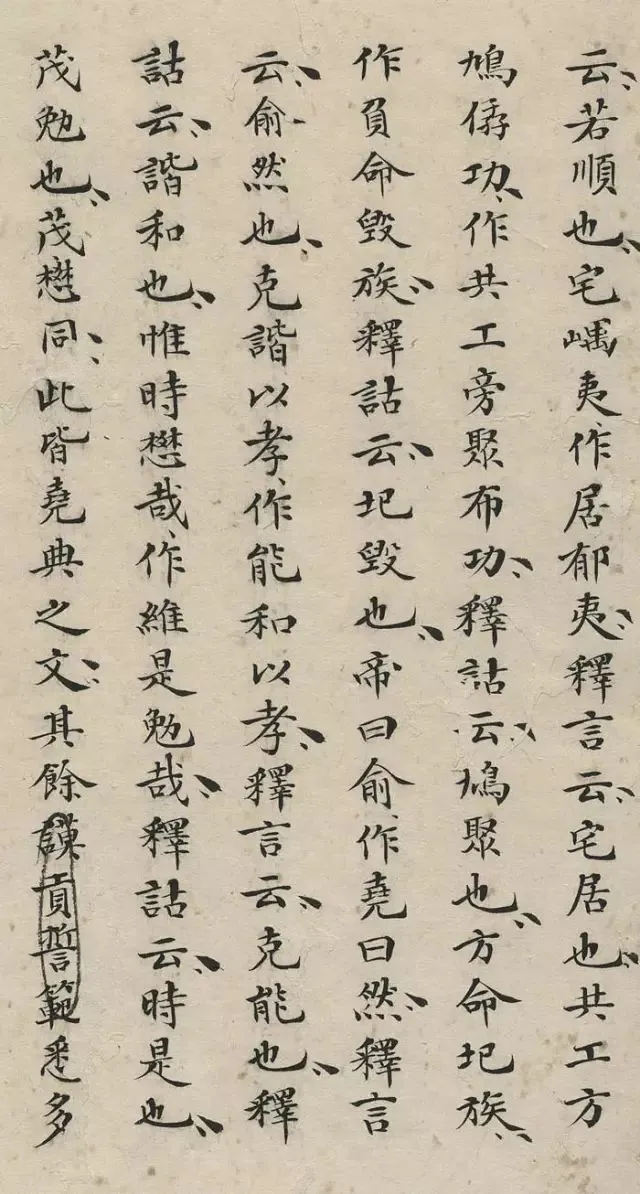 云若順也宅嵎夷作居郁夷釋言云宅居也共工方
鳩僝功作共工旁聚布功釋詁云鳩聚也方命圮族
作負命毀族釋詁云圮毀也帝曰俞作堯曰然釋言
云俞然也克諧以孝作能和以孝釋言云克能也釋
詁云諧和也惟時懋哉作維是勉哉釋詁云時是也
茂勉也茂懋同此皆堯典之文其餘謨貢誓範悉多